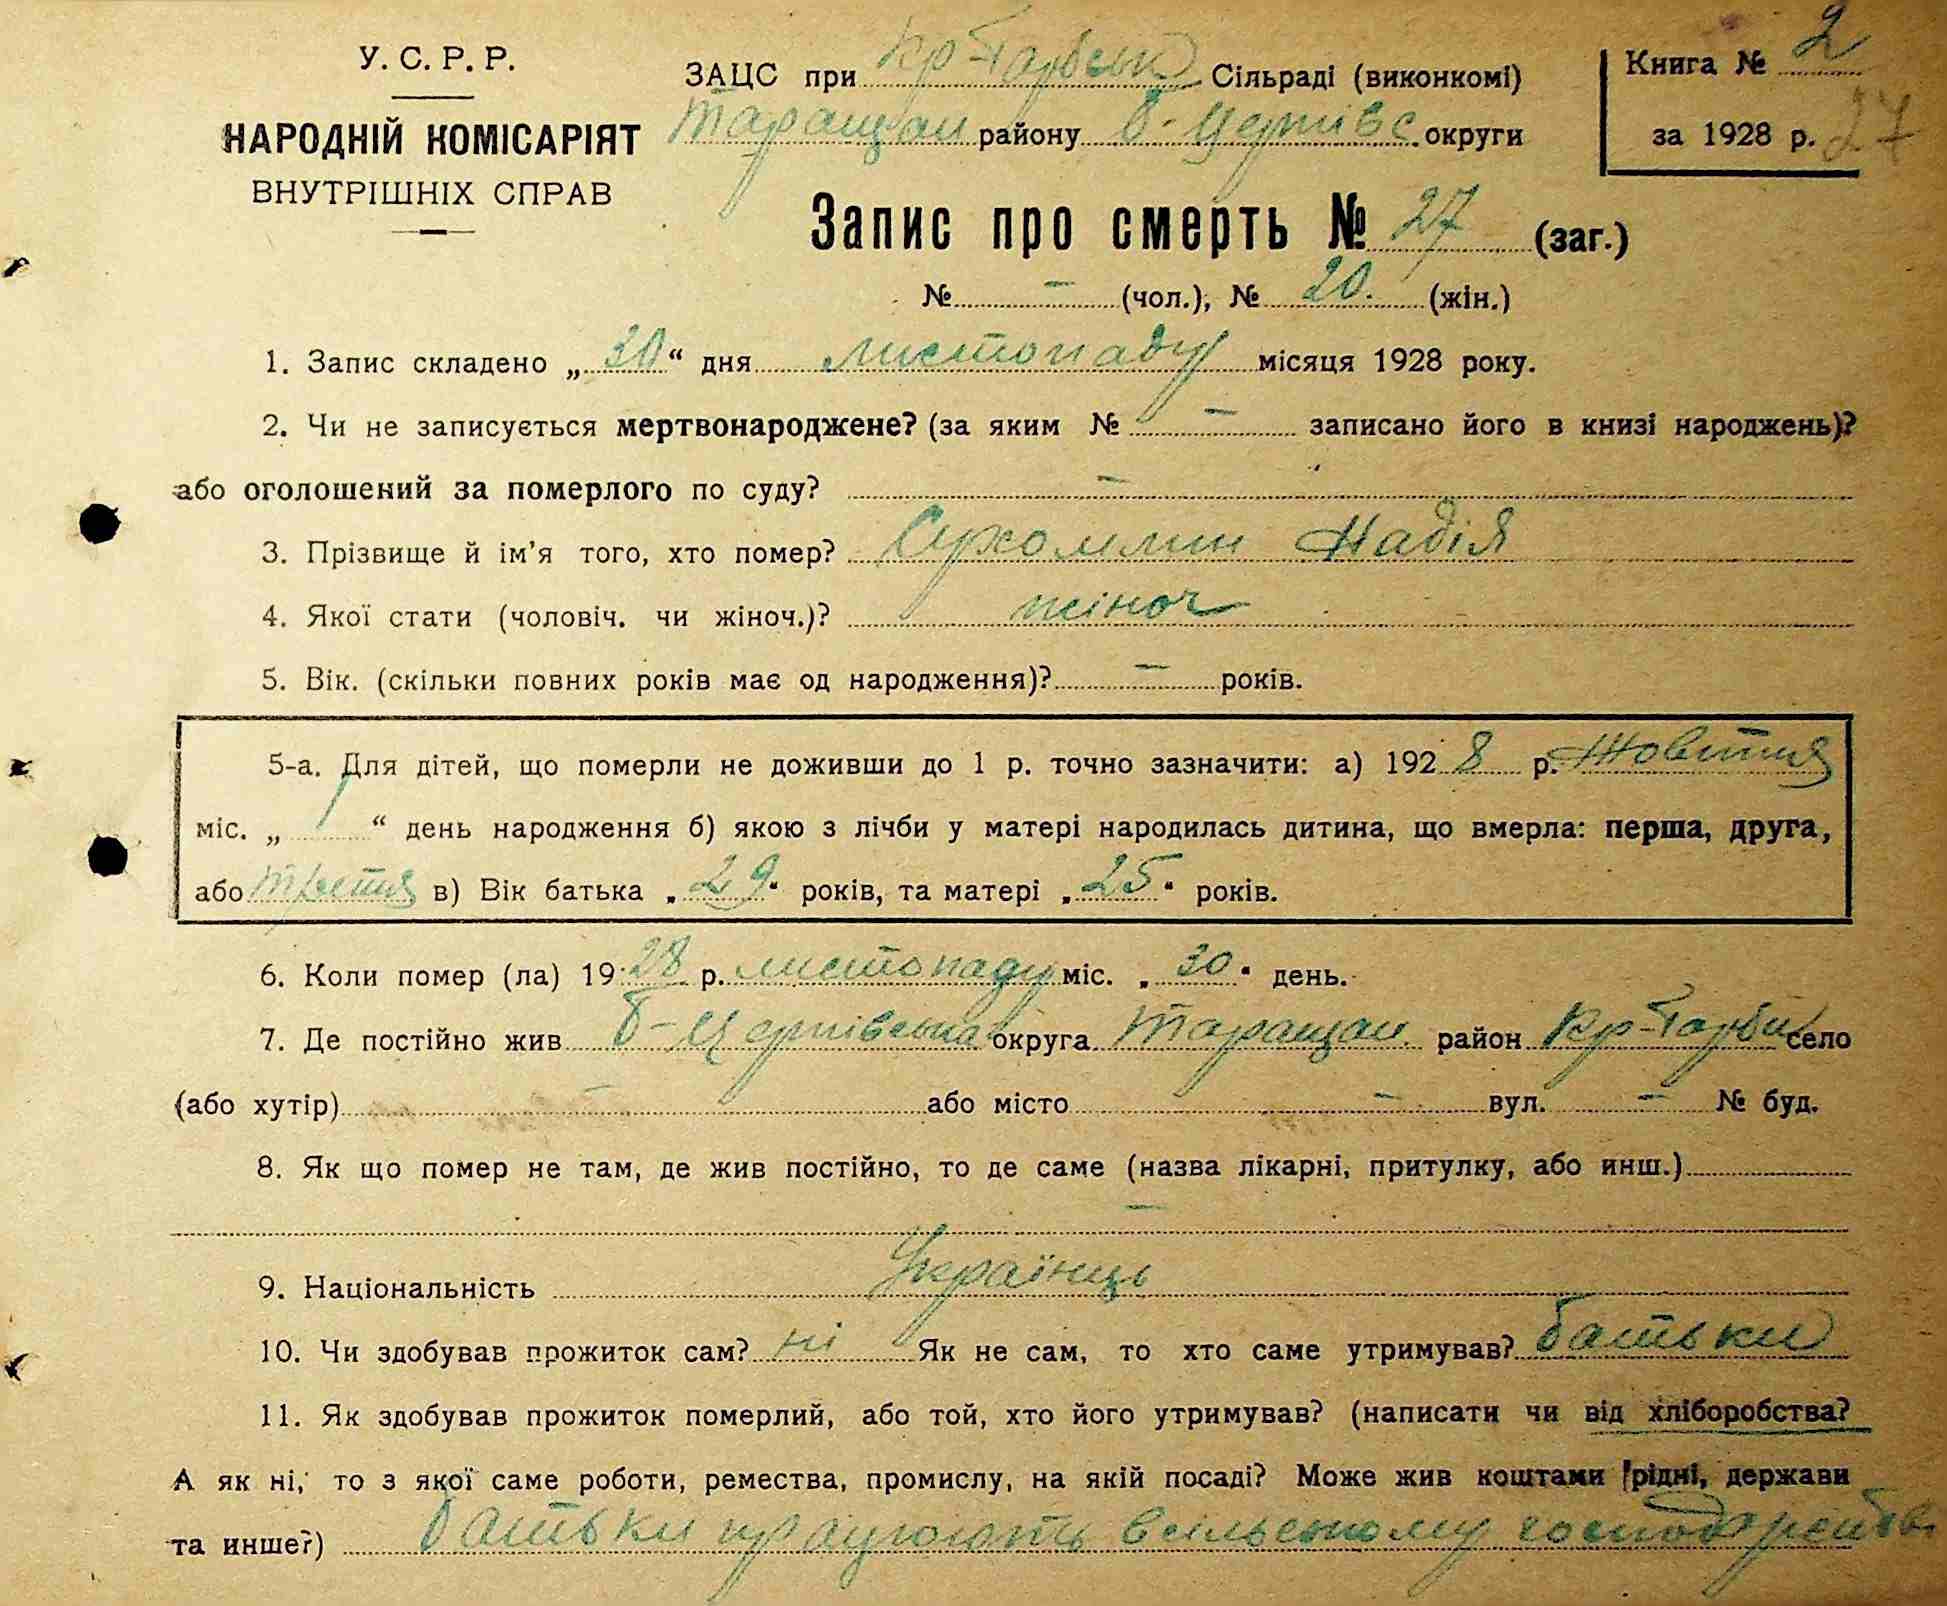 У. С. Р. Р.
НАРОДНІЙ КОМІСАРІЯТ
ВНУТРІШНІХ СПРАВ
ЗАЦС при Кр-Гарбськ Сільраді (виконкомі)
Таращан району Б-Церківс округи
Книга № 2
за 1928 р. 27
Запис про смерть № 27 (заг.)
№ — (чол.), № 20. (жін.)
1. Запис складено „30“ дня листопаду місяця 1928 року.
2. Чи не записується мертвонароджене? (за яким № — записано його в книзі народжень)?
або оголошений за померлого по суду? —
3. Прізвище й ім’я того, хто помер? Сухомлин Надія
4. Якої стати (чоловіч. чи жіноч.)? жіноч
5. Вік. (скільки повних років має од народження)? — років.
5-а. Для дітей, що померли не доживши до 1 р. точно зазначити: а) 1928 р. Жовтня
міс. „1“ день народження б) якою з лічби у матері народилась дитина, що вмерла: перша, друга,
або третя в) Вік батька „29“ років, та матері „25“ років.
6. Коли помер (ла) 1928 р. листопаду міс. „30“ день.
7. Де постійно жив Б-Церківська округа Таращан. район Кр-Гарби село
(або хутір) — або місто — вул. — № буд.
8. Як що помер не там, де жив постійно, то де саме (назва лікарні, притулку, або инш.)
—
9. Національність Українць
10. Чи здобував прожиток сам? ні Як не сам, то хто саме утримував? батьки
11. Як здобував прожиток померлий, або той, хто його утримував? (написати чи від хліборобства?
А як ні, то з якої саме роботи, ремества, промислу, на якій посаді? Може жив коштами рідні, держави
та инше?) батьки працюють всільському господарстві